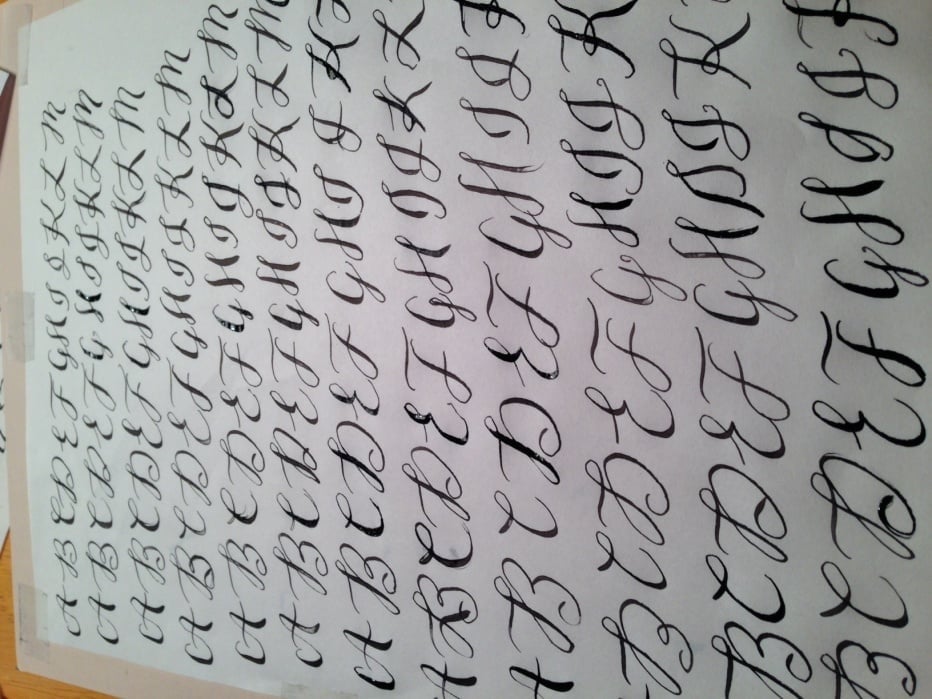 A B C D E F G H I J K L M
A B C D E F G H I J K L M
A B C D E F G H I J K L M
A B C D E F G H I J K L M
A B C D E F G H I J K L M
A B C D E F G H I J K L M
A B C D E F G H I J K
A B C D E F G H I J K L
A B C D E F G H I J
B C D E F G H I J K
B C D E F G H I J K
B C D E F G H I J